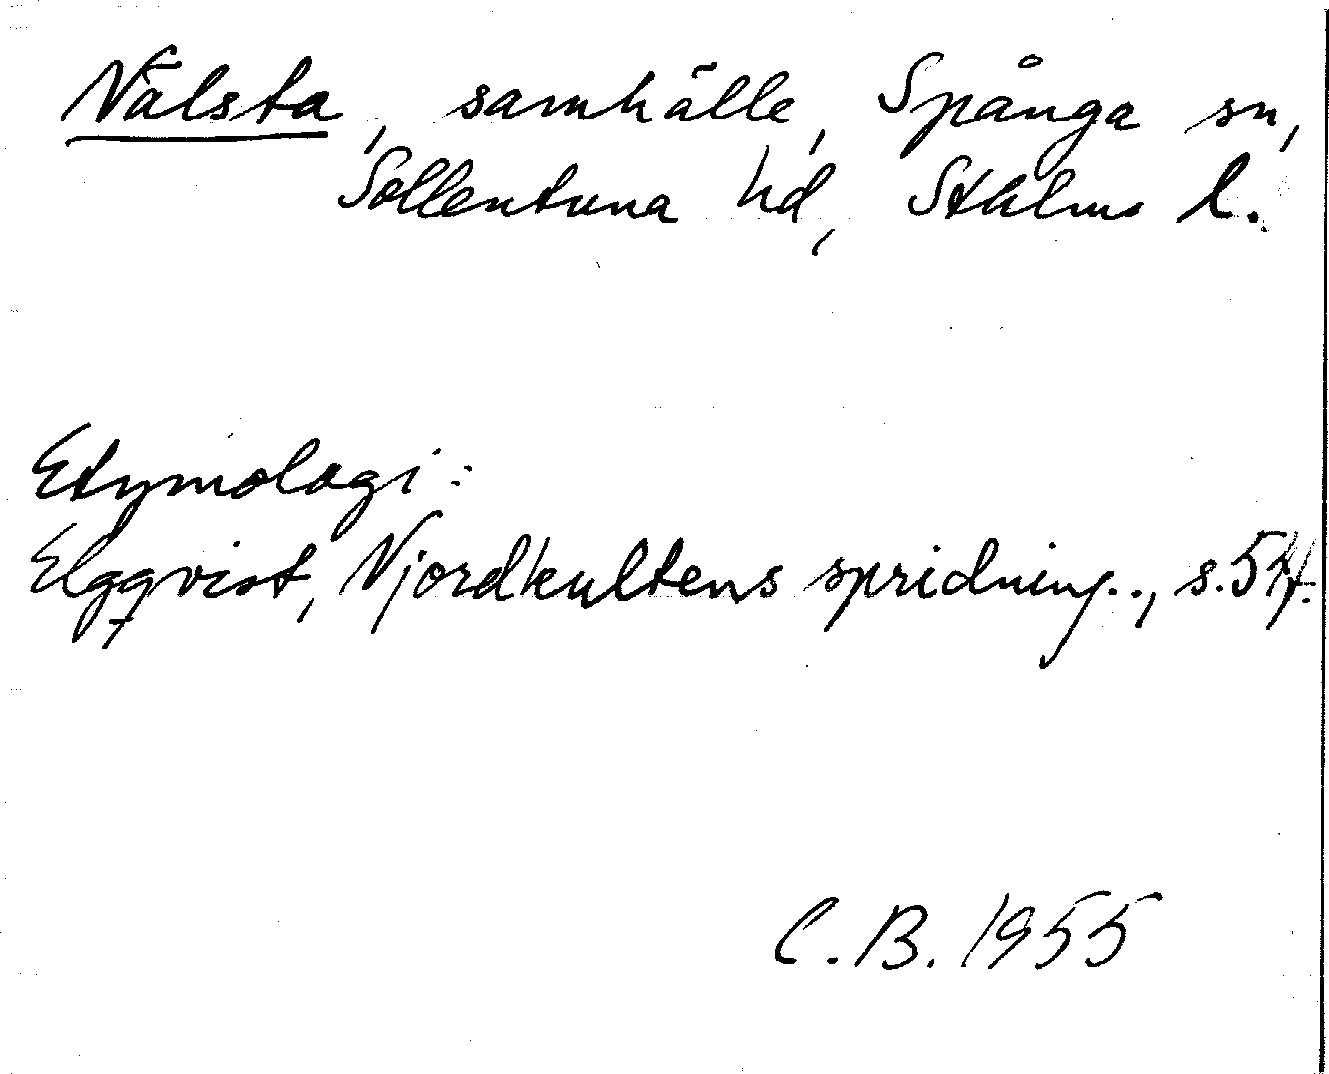 Nälsta, samhälle, Spånga sn,
Sollentuna hd, Sthlms l.
Etymologi:
Elgqvist, Njordkultens spridning.., s.
C.B. 1955